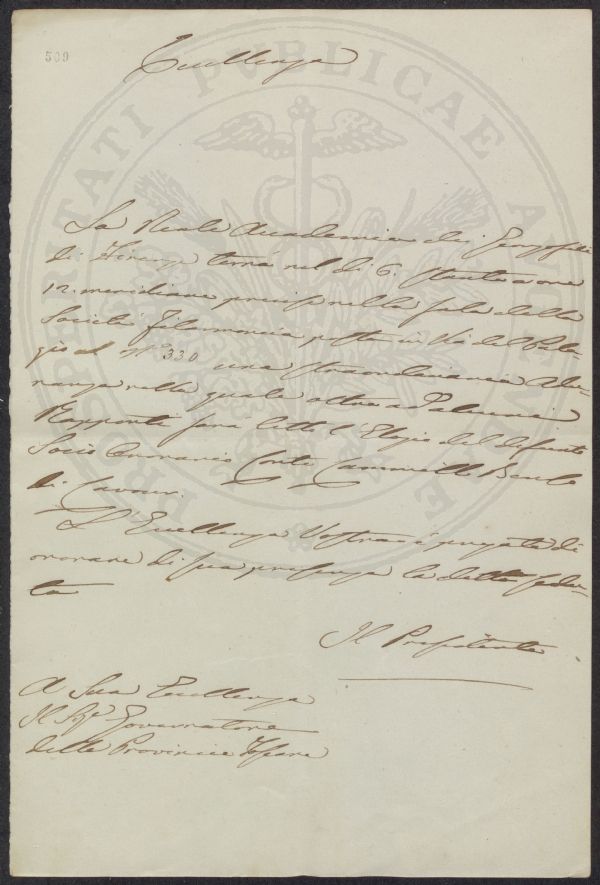 509
Eccellenza
La Reale Accademia dei Georgofili
di Firenze terrà nel dì 6. stante a ore
12. meridiane precise nella sala della
Società Filarmonica posta in Via del Pala-
gio al N° 330 una straordinaria Adu-
nanza nella quale oltre a
Rapporti sarà letto l'Elogio del defunto
Socio Onorario Conte Cammillo Benso
di Cavour.
L'Eccellenza Vostra è pregata di
onorare di sua presenza la detta sedu-
ta
Il Presidente
A Sua Eccellenza
Il Sigr Governatore
delle Provincie Toscane
PROSPERITATI PUBLICAE AUGENDAE